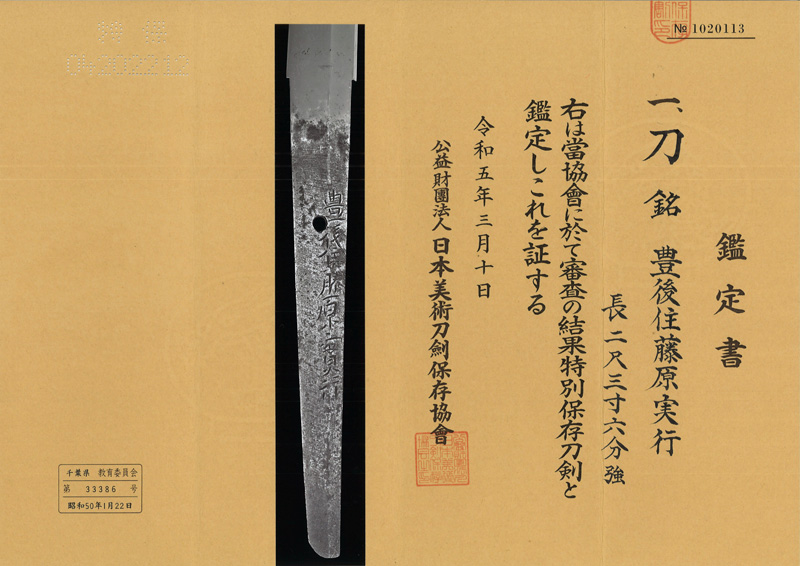 № 1020113
鑑定書
一、刀 銘 豊後住藤原実行
長 二尺三寸六分強
右は當協會に於て審査の結果特別保存刀剣と
鑑定しこれを証する
令和五年三月十日
公益財團法人 日本美術刀劍保存協會
豊後住藤原実行
千葉県 教育委員会
第 33386 号
昭和50年1月22日